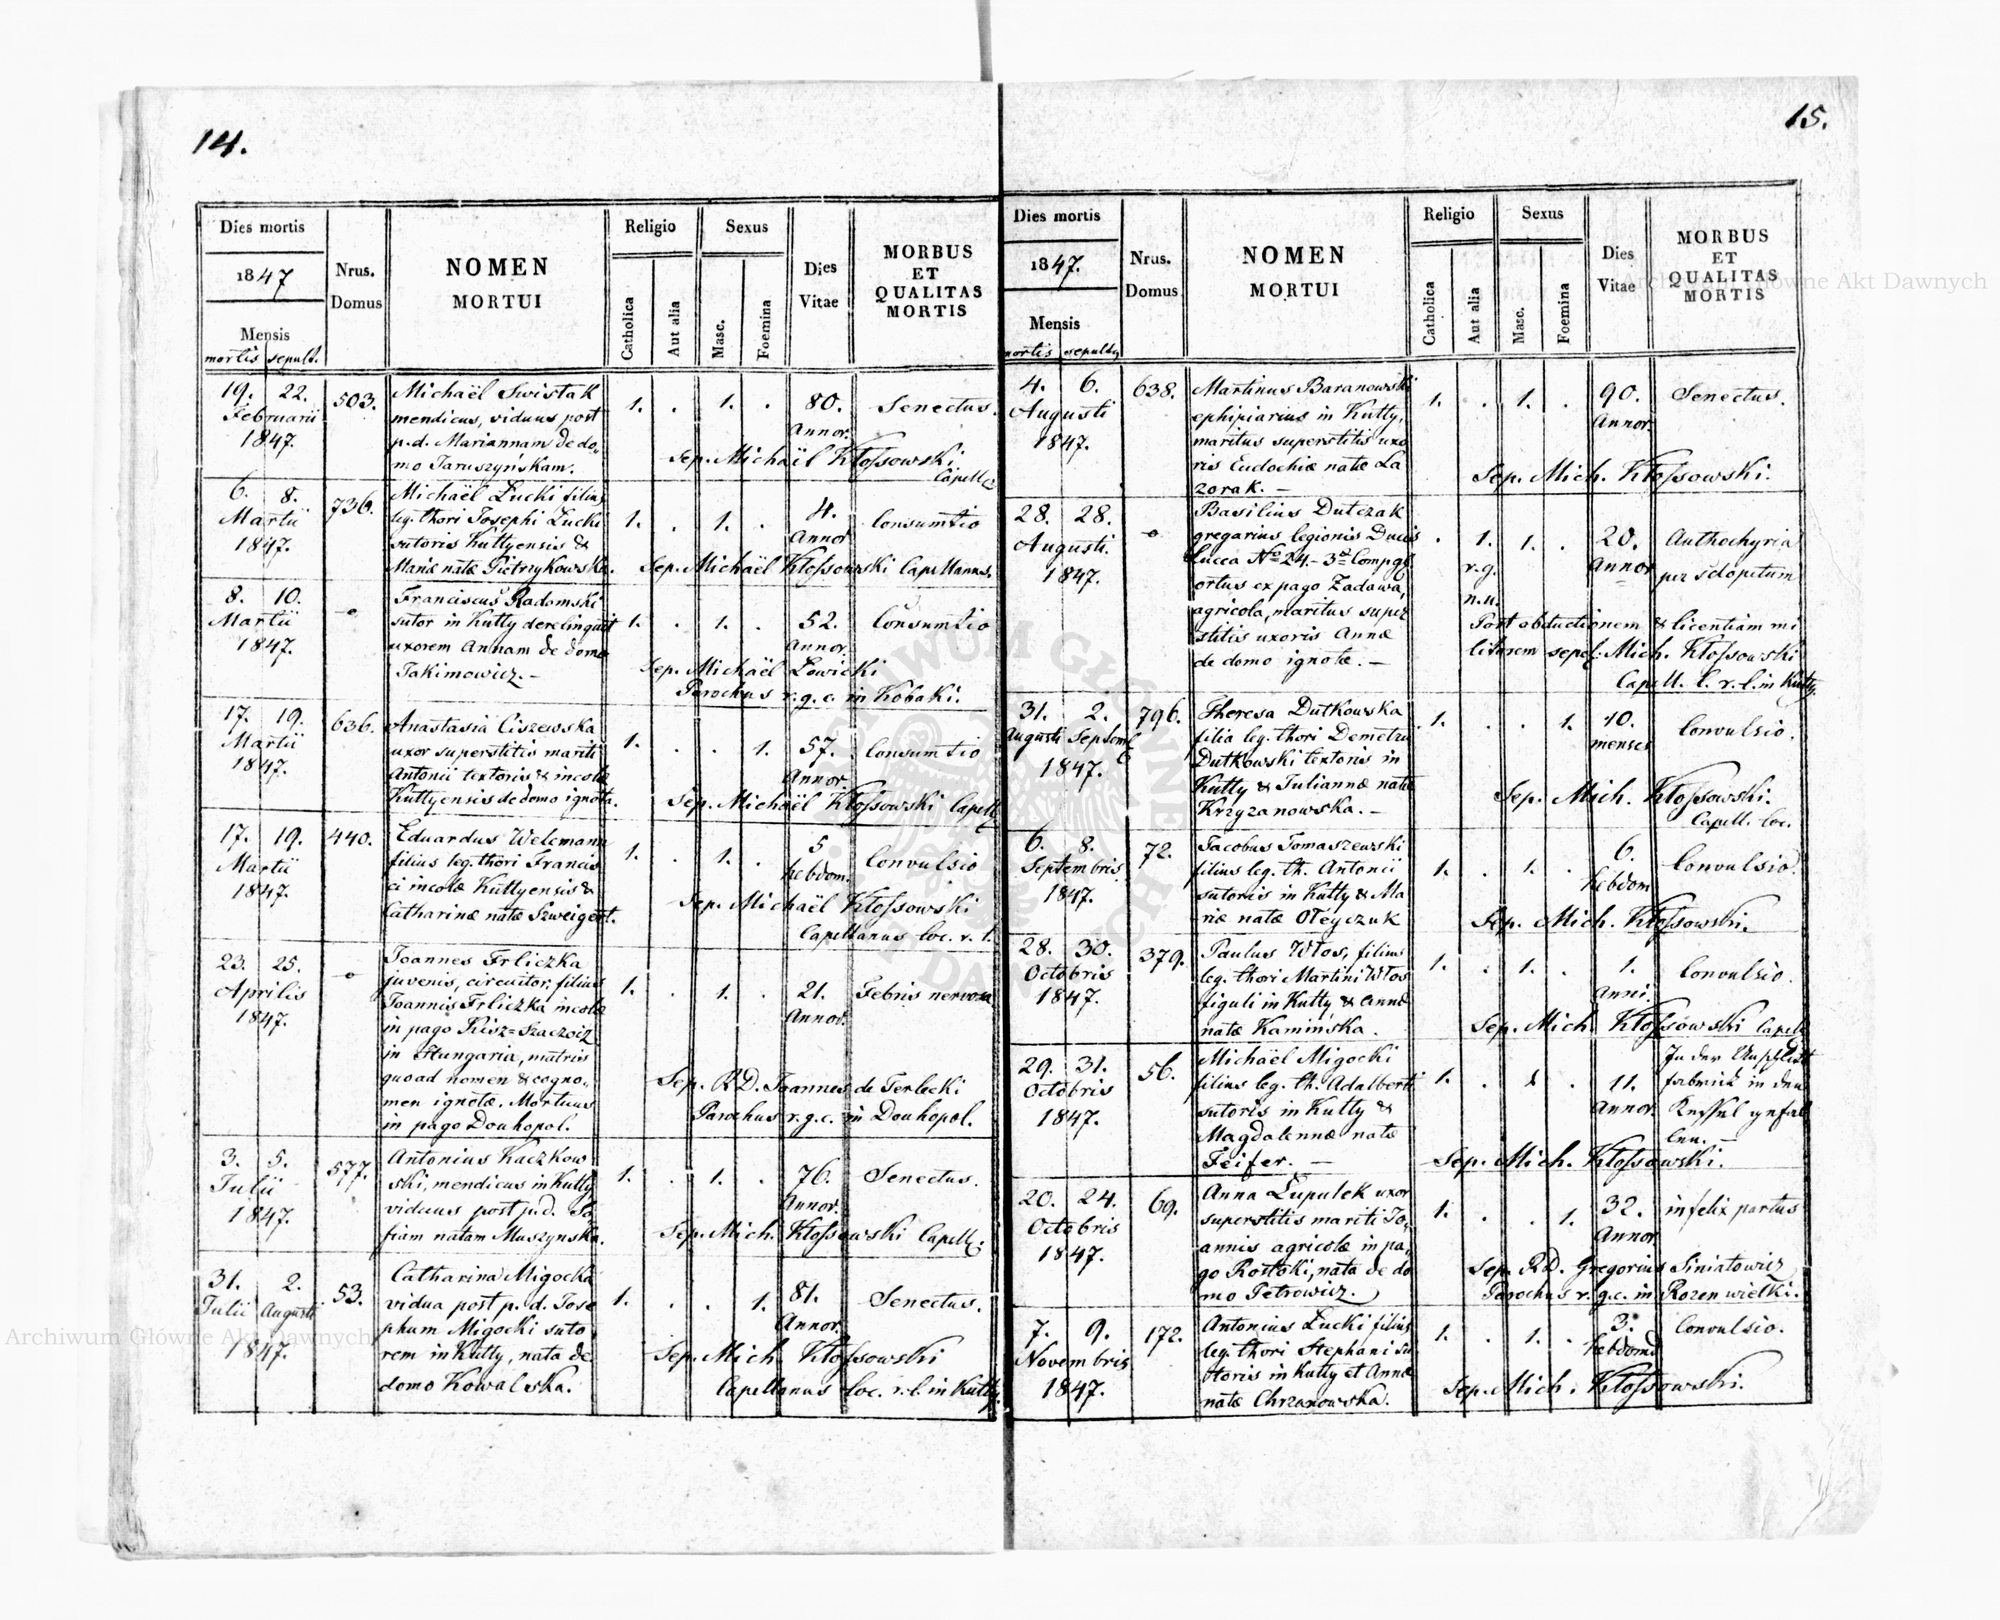 14.
Dies mortis
1847
Mensis
mortis sepult.
Nrus.
Domus
NOMEN
MORTUI
Religio
Catholica
Aut alia
Sexus
Masc.
Foemina
Dies
Vitae
MORBUS
ET
QUALITAS
MORTIS
19. 22.
Februarii
1847.
503.
Michaël Swistak
mendicus, viduus post
p.d. Mariannam de do„
mo Jaruszyńskam.
1. . 1. .
80.
Annor.
Senectus.
Sep. Michaël Kłossowski
Capell.
6. 8.
Martii
1847.
736.
Michaël Łucki filius
leg. thori Josephi Łucki
sutoris Kuttyensis &
Mariæ natæ Pietrzykowska.
1. . 1. .
4.
Annor
Consumtio
Sep. Michaël Kłossowski Capellanus.
8. 10.
Martii
1847.
-o
Franciscus Radomski
sutor in Kutty derelinquit
uxorem Annam de domo
Jakimowicz.-
1. . 1. .
52.
Annor.
Consumtio
Sep. Michaël Łowicki
Parochus r.g.c. in Kobaki.
17. 19.
Martii
1847.
636.
Anastasia Ciszewska
uxor superstitis mariti
Antonii textoris & incolæ
Kuttyensis de domo ignota.
1. . . 1.
57.
Annor.
Consumtio
Sep. Michaël Kłossowski Capell
17. 19.
Martii
1847.
440.
Eduardus Welcmann
filius leg. thori Francis
ci incolæ Kuttyensis &
Catharinæ natæ Szweigert.
1. . 1. .
5
hebdom.
Convulsio
Sep. Michaël Kłossowski
Capellanus loc. r. l.
23. 25.
Aprilis
1847.
-o
Joannes Frliczka
juvenis, circuitor, filius
Joannis Frliczka incolæ
in pago
in Hungaria, matris
quoad nomen & cogno„
men ignotæ. Mortuus
in pago Douhopol.
1. . 1. .
21.
Annor.
Febris nervosa
Sep. RD. Joannes de Terlecki
Parochus r.g.c. in Douhopol.
3. 5.
Julii
1847.
577.
Antonius Kaczkow
ski, mendicus in Kutty
viduus post p.d. So
fiam natam Muszynska.
1. . 1. .
76.
Annor.
Senectus.
Sep. Mich. Kłossowski Capell.
31. 2.
Julii Augusti
1847.
53.
Catharina Migocka
vidua post p. d. Jose
phum Migocki suto
rem in Kutty, nata de
domo Kowalska.
1. . . 1.
81.
Annor.
Senectus.
Sep. Mich. Kłossowski
Capellanus loc. r.l. in Kutty.
15.
Dies mortis
1847.
Mensis
mortis sepultg
Nrus.
Domus
NOMEN
MORTUI
Religio
Catholica
Aut alia
Sexus
Masc.
Foemina
Dies
Vitae
MORBUS
ET
QUALITAS
MORTIS
4. 6.
Augusti
1847.
638.
Martinus Baranowski
ephipiarius in Kutty,
maritus superstitis uxo
ris Eudochiæ natæ La
zorak. -
1. . 1. .
90.
Annor.
Senectus.
Sep. Mich. Kłossowski.
28. 28.
Augusti.
1847.
-o
Basilius Dutczak
gregarius legionis Ducis
Lucca No 24.- 3æ Compg.
ortus ex pago Zadawa,
agricola, maritus super
stitis uxoris Annæ
de domo ignotæ. -
. 1. 1. .
r.g.
n.u.
20.
Annor
Authochyria
per sclopetum
Post abductionem & licentiam mi
litarem sepel: Mich. Kłossowski
Capell. l. r. l. in Kutty
31. 2.
Augusti Septemb
1847.
796.
Theresa Dutkowska
filia leg. thori Demetrii
Dutkowski textoris in
Kutty & Juliannæ natæ
Krzyzanowska. -
1. . . 1.
10.
menses
Convulsio.
Sep. Mich. Kłossowski.
Capell. loc.
6. 8.
Septembris
1847.
72.
Jacobus Tomaszewski
filius leg. th. Antonii
sutoris in Kutty & Ma
riæ natæ Oleyczuk
1. . 1. .
6.
hebdom
Convulsio.
Sep. Mich. Kłossowski.
28. 30.
Octobris
1847.
379.
Paulus Włos, filius
leg. thori Martini Włos
figuli in Kutty & Annæ
natæ Kamińska.
1. . 1. .
1.
Anni.
Convulsio.
Sep. Mich. Kłossowski Capell
29. 31.
Octobris
1847.
56.
Michaël Migocki
filius leg. th. Adalberti
sutoris in Kutty &
Magdalennæ natæ
Feifer. -
1. . 1. .
11.
Annor.
In der Unschlitt
fabrick in den
Kessel gefal
len. -
Sep. Mich. Kłossowski.
20. 24.
Octobris
1847.
69.
Anna Łupulek uxor
superstitis mariti Jo„
annis agricolæ in pa„
go Rostoki, nata de do
mo Petrowicz.
1. . . 1.
32.
Annor
infelix partus
Sep. RD. Gregorius Siniatowicz
Parochus r. g.c. in Rozen wielki.
7. 9.
Novembris
1847.
172.
Antonius Łucki filius
leg. thori Stephani su
toris in Kutty et Annæ
natæ Chrzanowska.
1. . 1. .
3.
hebdomd
Convulsio.
Sep. Mich. Kłossowski.
Archiwum Główne Akt Dawnych
Archiwum Główne Akt Dawnych
ARCHIWUM GŁÓWNE AKT DAWNYCH